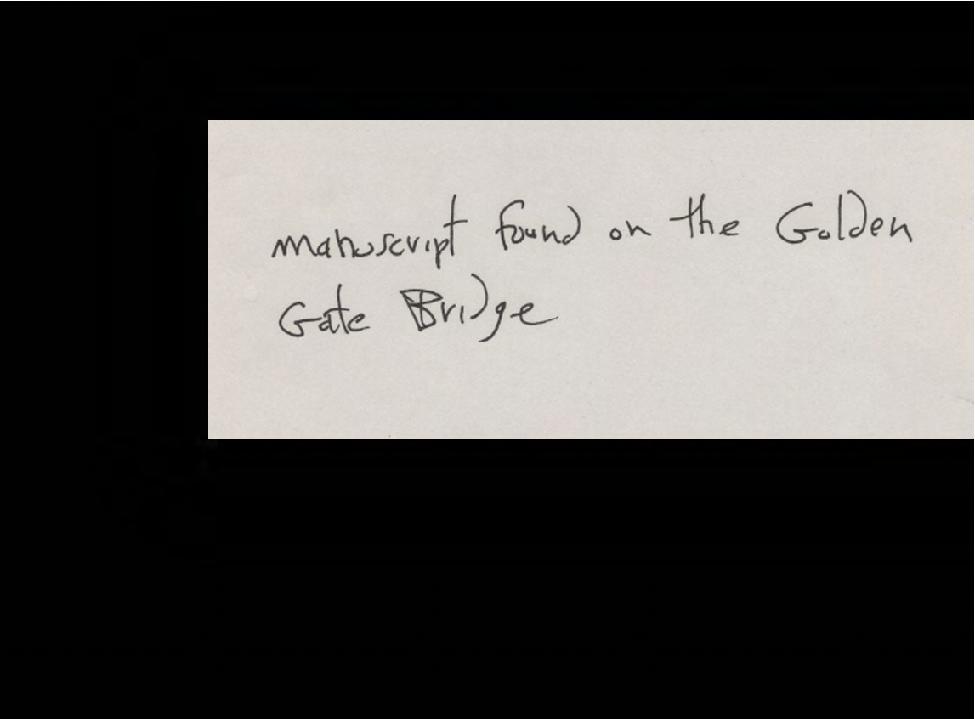 manuscript found on the Golden
Gate Bridge